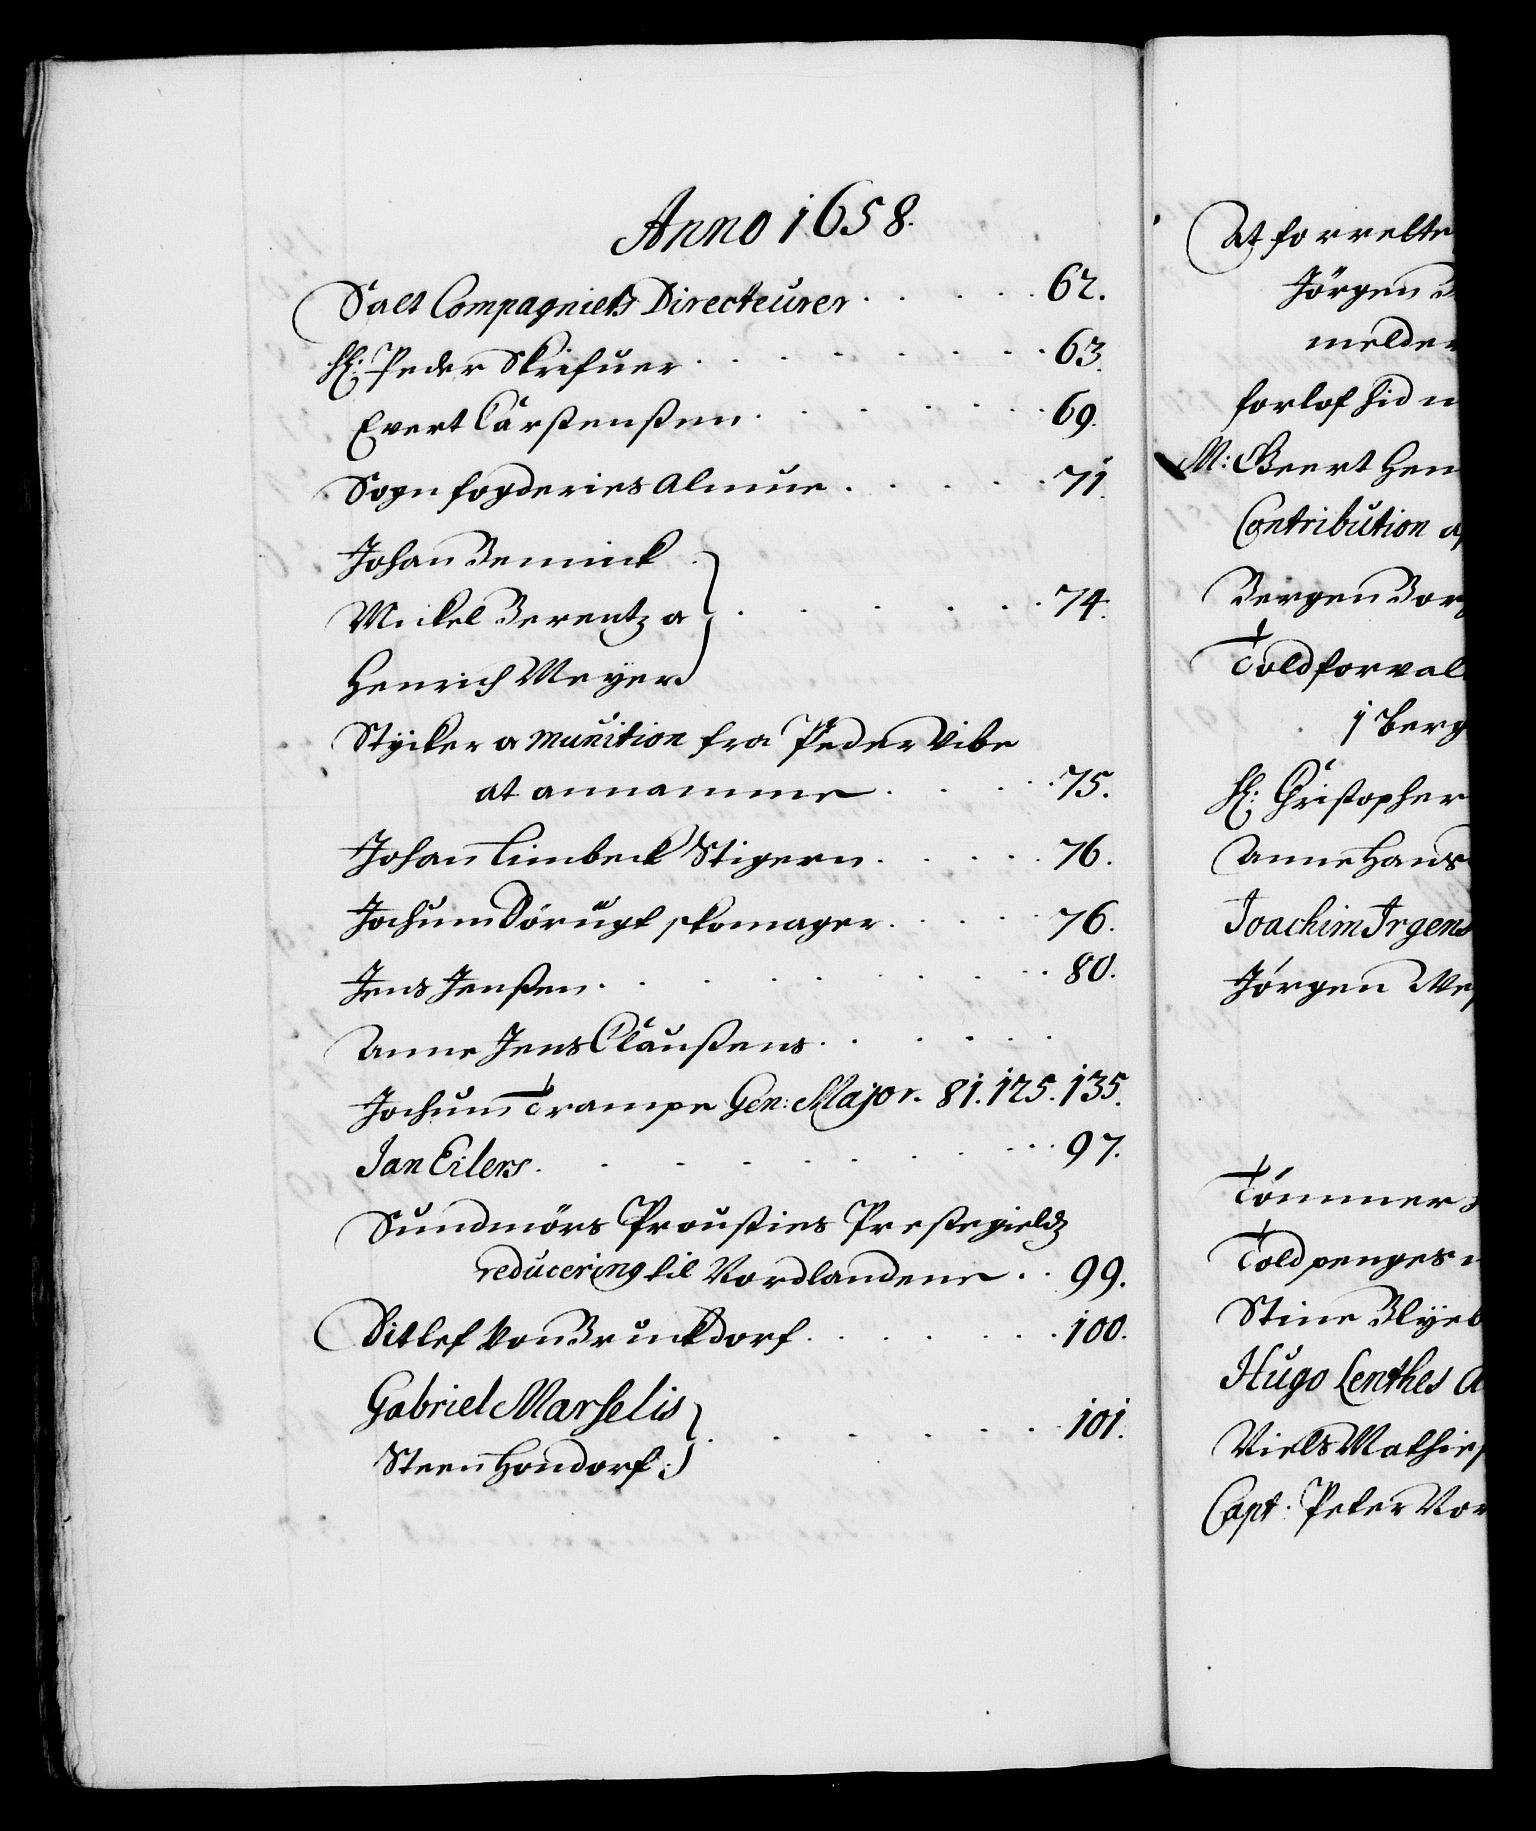 Anno 1658.
Salt Compagniets Directeurer . . . . . 62.
H: Peder Skrifuer . . . . . . . . 63.
Evert Carstensen . . . . . . . 69.
Sogn fogderies Almue . . . . . 71.
Johan Bennick
Mickel Berentz a . . . . . . . 74.
Henrich Meyer
Stycker a munition fra Peder Vibe
at annamme . . . . 75.
Johan Limbeck Stigern . . . . . 76.
Jochum Dörügt skomager . . . . . 76.
Jens Jensen . . . . . . . . 80.
Anne Jens Claussens . . . . . .
Jochum Trampe Gen: Major. 81. 125. 135.
Jan Eilers . . . . . . . . 97.
Sundmörs Prousties Prestegieldz
reducering til Nordlandene . . 99.
Ditlef von Bruckdorf . . . . . . . 100.
Gabriel Marselis
Steen Hondorf . . . . . . . 101.
At forrette
Jörgen
melde
forlof hid
M: Geert Hen
Contribution a
Bergen Bor
Toldforval
i Berg
H: Christopher
Anne Hans
Joachim Irgens
Jörgen
Tömmer
Toldpenges
Stine Blyeb
Hugo Lenthes a
Niels Mathies
Capt. Peter Nor